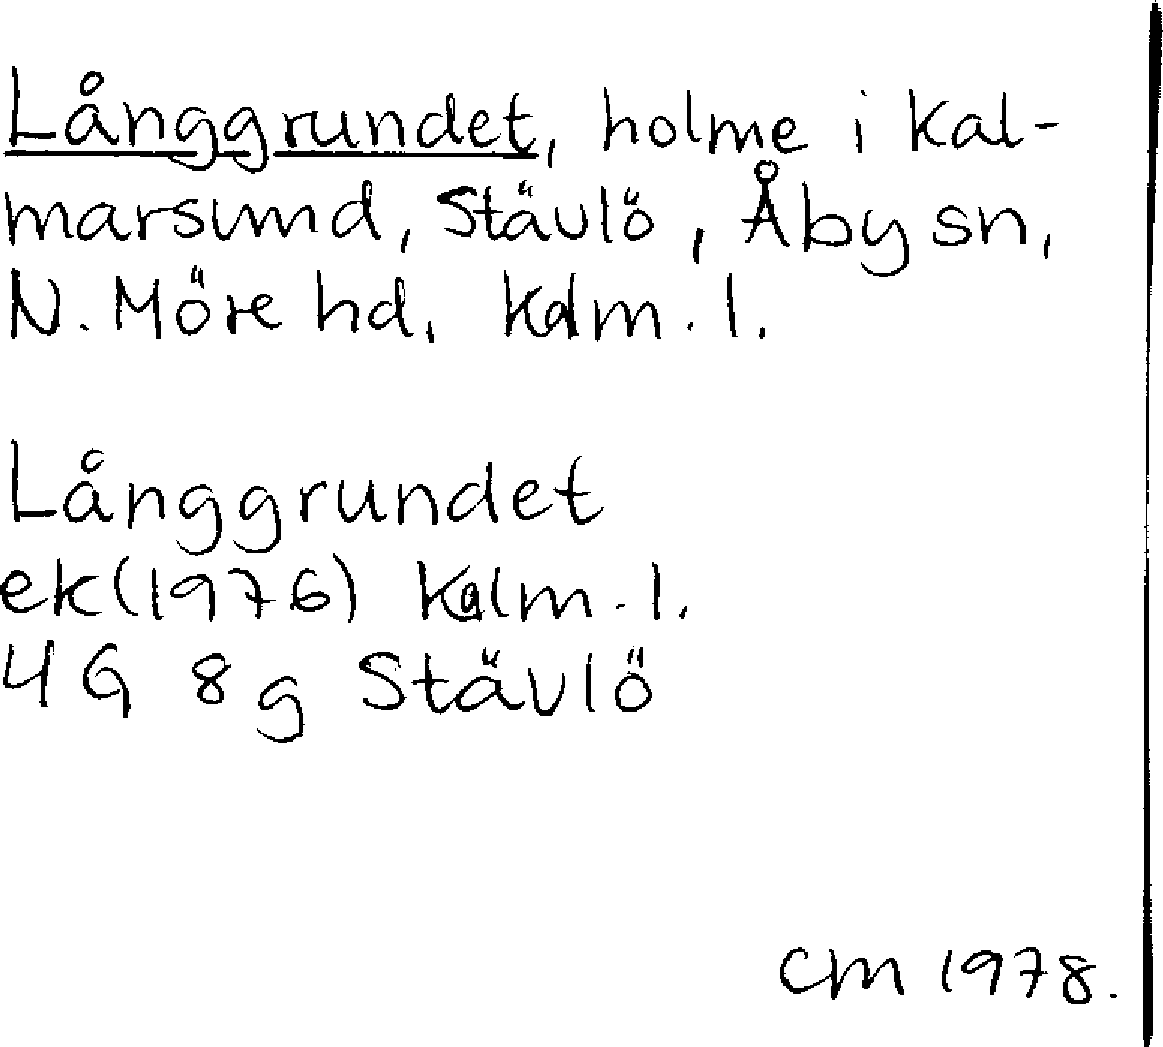 Långgrundet, holme i Kal-
marsund, Stävlö, Åby sn,
N. Möre hd, Kalm. l.
Långgrundet
ek(1976) Kalm. l.
4G 8g Stävlö
CM 1978.